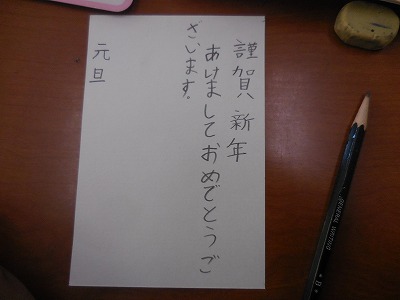 謹賀新年
あけましておめでとうご
ざいます。
元旦
GENERAL WRITING
B